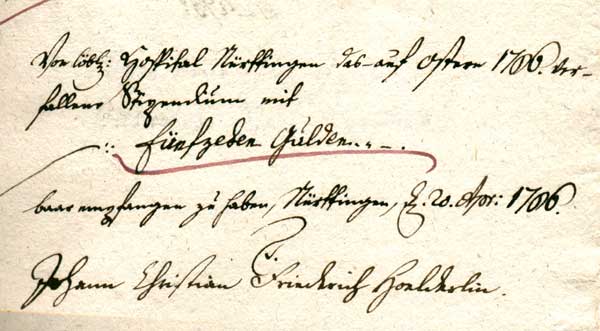 Von löbl: Hospital Nürttingen das auf Ostern 1786. ver-
fallene Stipendium mit
fünfzehen Gulden
baar empfangen zu haben, Nürttingen, d. 20. Apr: 1786.
Johann Christian Friederich Hoelderlin.